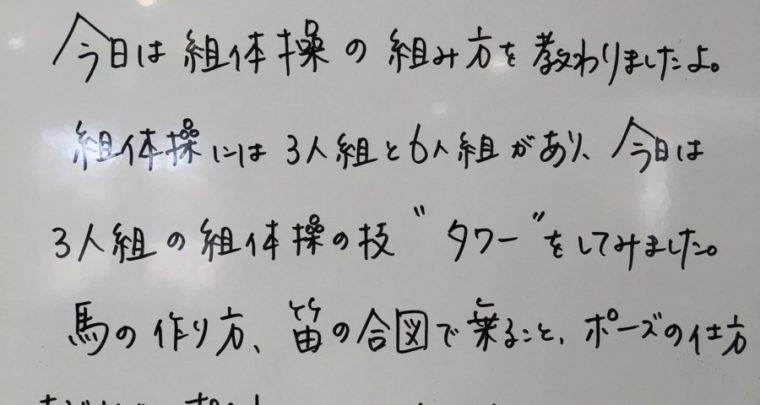 今日は組体操の組み方を教わりましたよ。
組体操には3人組と6人組があり、今日は
3人組の組体操の技〝タワー〟をしてみました。
馬の作り方、笛の合図で乗ること、ポーズの仕方